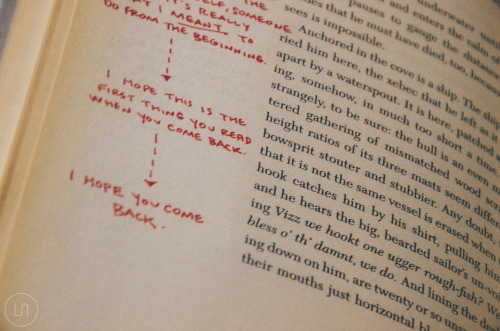 ELF, SOMEONE
IT'S REALLY THE
T I MEANT TO
DO FROM THE BEGINNING.
I HOPE THIS IS THE
FIRST THING YOU READ
WHEN YOU COME BACK.
I HOPE YOU COME
BACK.
underwater
and enters the calm of
pauses to gauge the
es that he must have died, too,
sees is impossible.
Anchored in the cove is a ship. The
ried him here, the zebec that he left as it
apart by a waterspout. It is here, patched
ing, somehow, in much too short a time
strangely, to be sure: the hull is an even
tered gathering of mismatched wood
height ratios of its three masts seem differ
bowsprit stouter and stubbier. Any doubt
that it is not the same vessel is erased when
hook catches him by his shirt, pulling hi
and he hears the big, bearded sailor's un-vo
ing Vizz we hookt one ugger rough-fish? W
bless o' th' damnt, we do. And lining the de
ing down on him, are twenty or so un
their mouths just horizontal